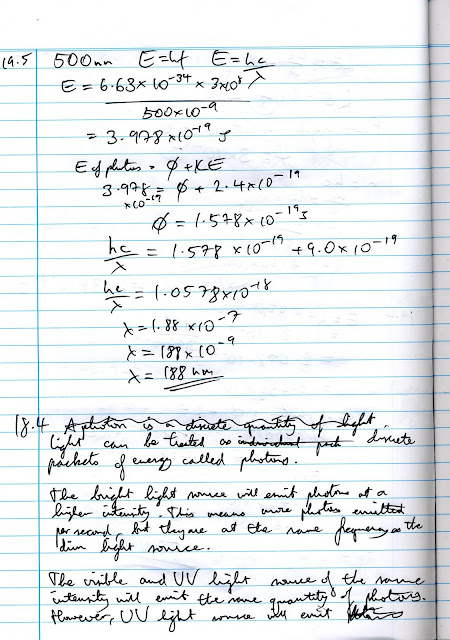 19.5 500nm E=hf E=hc/λ
E = 6.63×10⁻³⁴ × 3×10⁸
500×10⁻⁹
= 3.978×10⁻¹⁹ J
E of photon = Ø+KE
3.978 ×10⁻¹⁹ = Ø + 2.4×10⁻¹⁹
Ø = 1.578×10⁻¹⁹J
hc/λ = 1.578 ×10⁻¹⁹ + 9.0×10⁻¹⁹
hc/λ = 1.0578×10⁻¹⁸
λ = 1.88 ×10⁻⁷
λ = 188 ×10⁻⁹
λ = 188 nm
18.4 A photon is a discrete quantity of light.
Light can be treated as individual discrete
packets of energy called photons.
The bright light source will emit photons at a
higher intensity. This means more photons emitted
per second, but they are at the same frequency as the
dim light source.
The visible and UV light source of the same
intensity will emit the same quantity of photons.
However, UV light source will emit